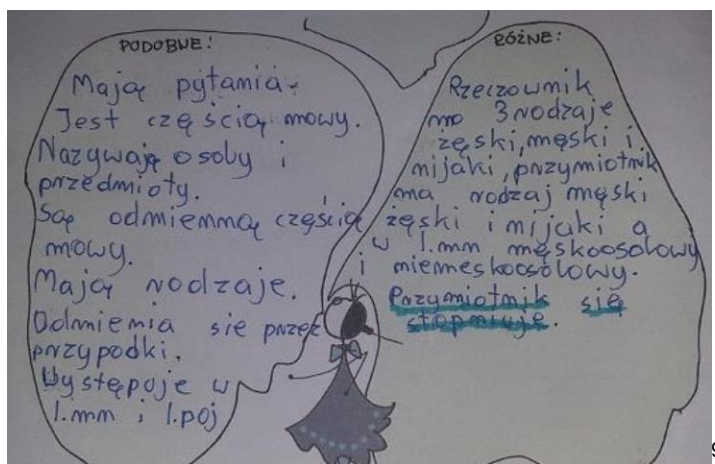 PODOBNE:
Mają pytania.
Jest częścią mowy.
Nazywają osoby i
przedmioty.
Są odmienną częścią
mowy.
Mają rodzaje.
Odmienia sie przez
przypadki.
Występuje w
l.mn i l.poj
RÓŻNE:
Rzeczownik
ma 3 rodzaje
żęski, męski i
nijaki, przymiotnik
ma rodzaj męski
żęski i nijaki a
w l.mn męskoosobowy
i niemęskoosobowy.
Przymiotnik się
stopniuje.
9